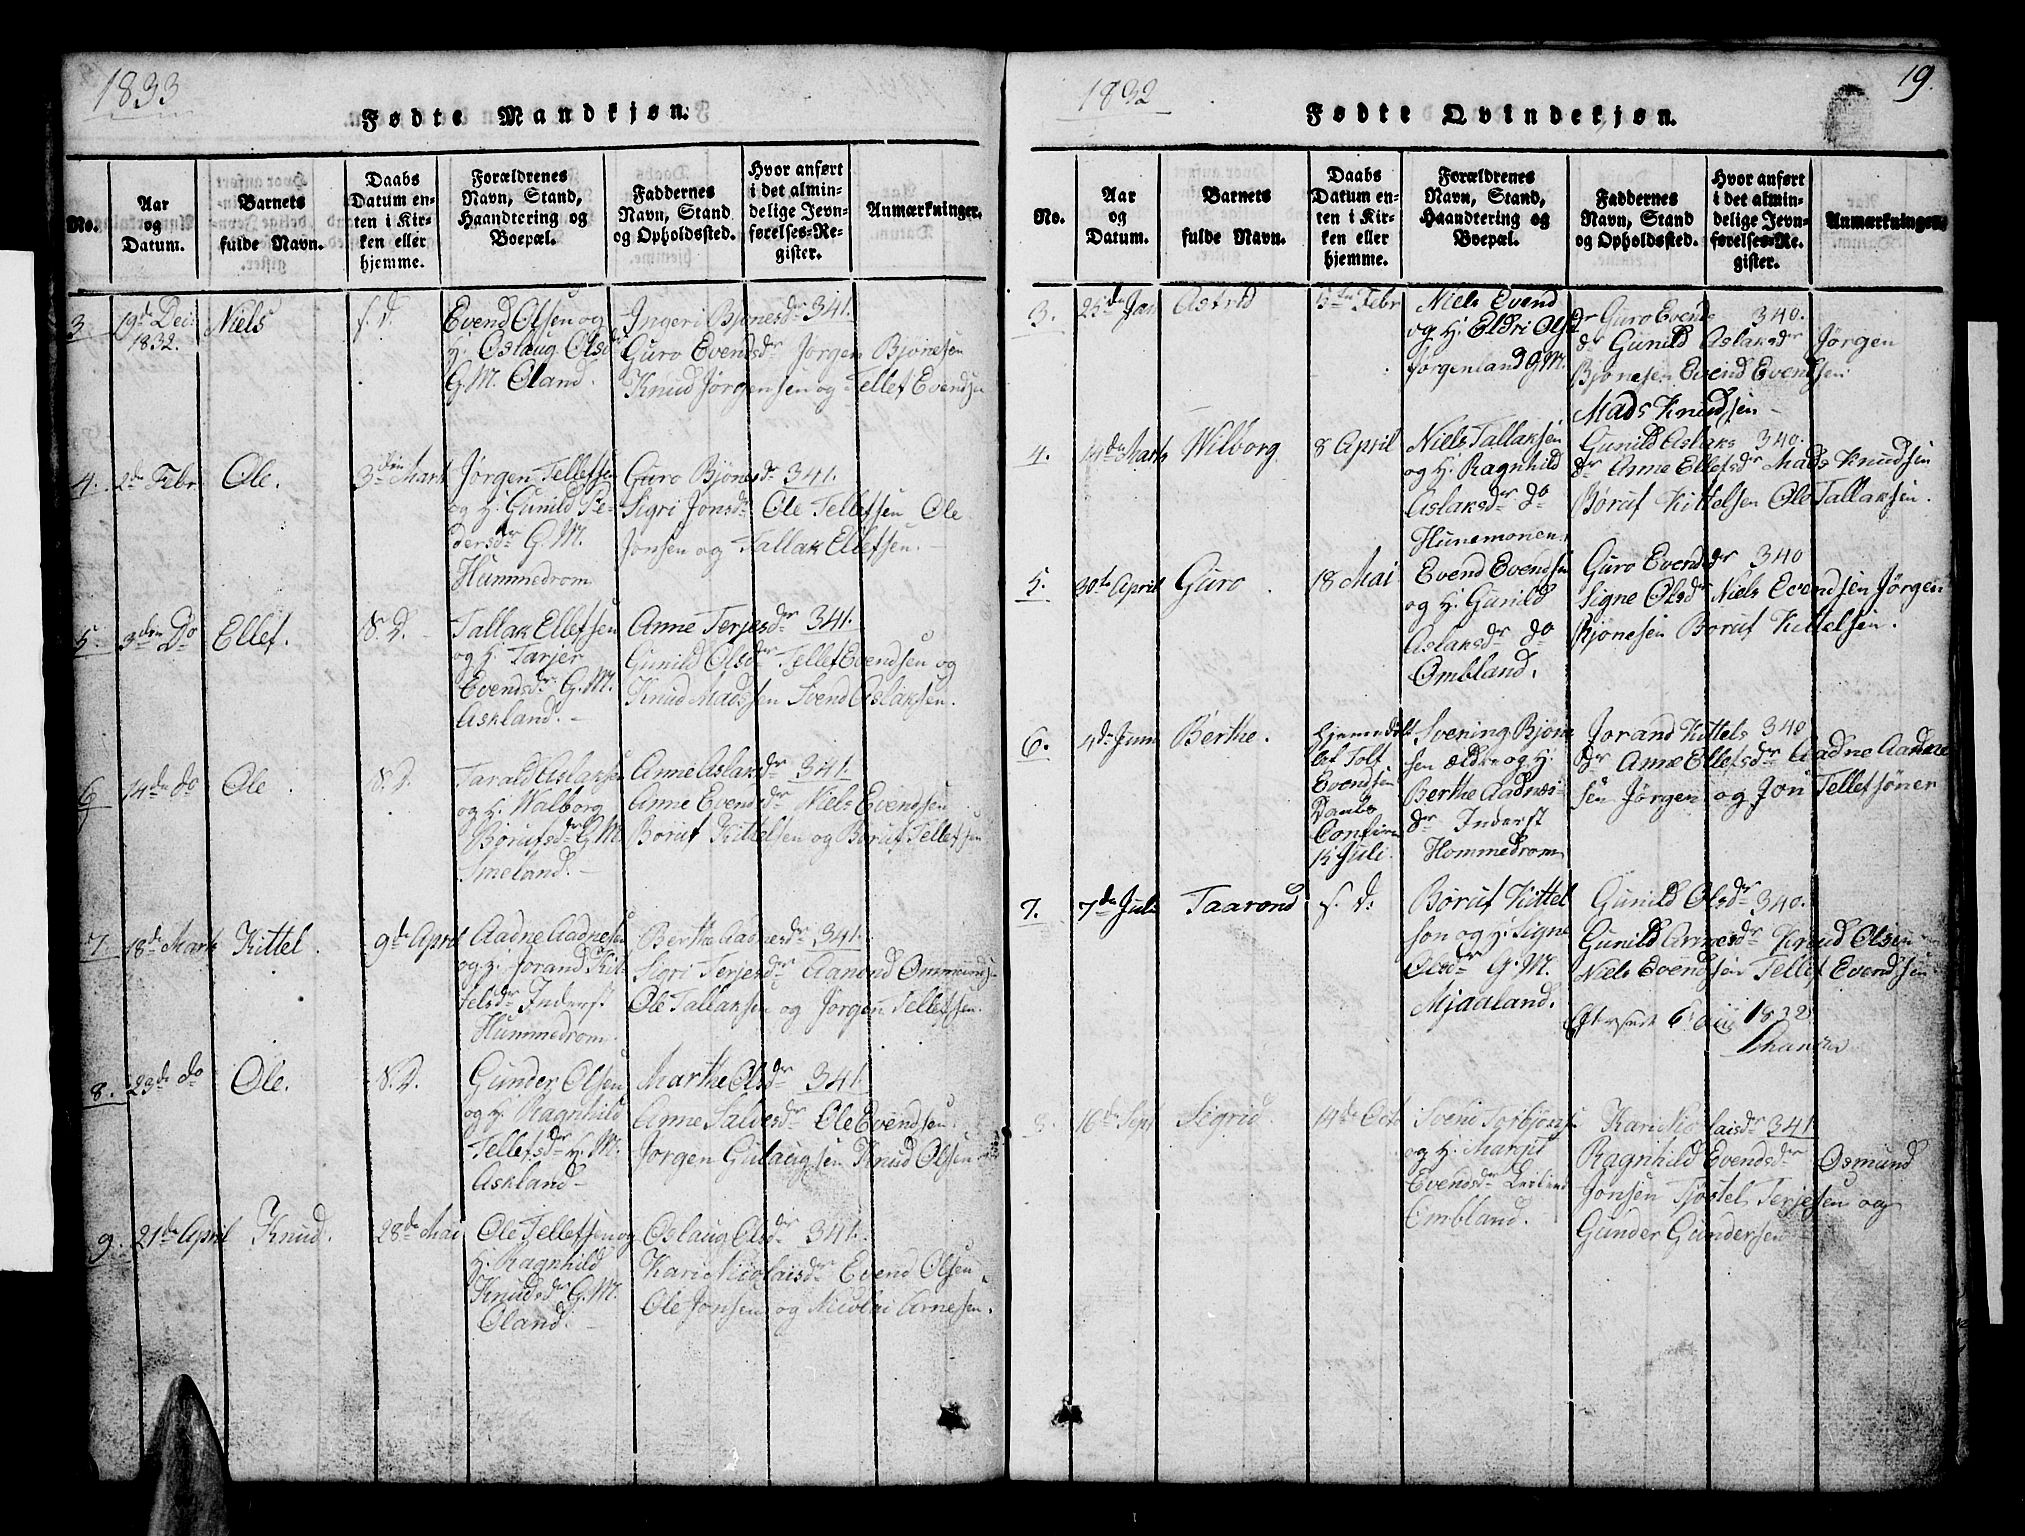 1833
Fødte Mandkjøn.
No.
Aar og Datum.
Barnets fulde Navn.
Daabs Datum enten i Kirken eller hjemme.
Forældrenes Navn, Stand, Haandtering og Boepæl.
Faddernes Navn, Stand og Opholdssted.
Hvor anført i det almindelige Jevnførelses-Register.
Anmærkninger.
3
19de
1832.
Niels
Evend Olsen og
H. Oslaug Olsdr
G.M. Oland.
Ingeri Bjonesdr 341.
Guro Evendsdr Jørgen Bjonesen
Knud Jørgensen og Tellef Evendsen
4.
2de Febr
Ole.
3den Marts
Jørgen Tellefsen
og H. Gunild Pe-
dersdr G.M.
Hummedrom
Guro Bjonesdr 341.
Sigri Jonsdr Ole Tellefsen Ole
Jonsen og Tallak Ellefsen.
5.
3den Do
Ellef.
S. D.
Tallak Ellefsen
og H. Tarjer
Evendsdr G.M.
Askland.
Anne Terjesdr 341.
Gunild Olsdr Tellef Evendsen og
Knud Madssen Svend Aslaksen.
6
14de do
Ole
S. D.
Tarald Aslaksen
og H. Walborg
Børufsdr G.M.
Smeland.
Anne Aslaksdr 341.
Anne Evendsdr Niels Evendsen
Boruf Kittelsen og Boruf Tellefsen
7.
18de Marts
Kittel.
9de April
Aadne Aadnesen
og H. Jorand Kit-
telsdr Inderst
Hummedrom
Berthe Aadnesdr 341.
Sigri Terjesdr Aanond Ommunds
Ole Tallaksen og Jørgen Tellefsen.
8.
23de do
Ole.
S. D.
Gunder Olsen
og H. Ragnhild
Tellefsdr H.M.
Askland
Marthe Olsdr 341.
Anne Salvesdr Ole Evendsen
Jørgen Gulaugsen Knud Olsen
9.
21de April
Knud.
28de Mai
Ole Tellefsen og
H. Ragnhild
Knudsdr G.M.
Oland.
Oslaug Olsdr 341.
Kari Nicolaisdr Evend Olsen
Ole Jonsen og Nicolai Arnesen.
1832
19.
Fødte Qvindekjøn.
No.
Aar og Datum.
Barnets fulde Navn.
Daabs Datum enten i Kirken eller hjemme.
Forældrenes Navn, Stand, Haandtering og Boepæl.
Faddernes Navn, Stand og Opholdssted.
Hvor anført i det almindelige Jevnførelses-Register.
Anmærkninger.
3.
25de Jan
Astrid
Febr
Niels Evend
og H. Eldri Ols
Jørgenland G.M.
Guro Evends 340.
dr Gunild Aslaksdr Jørgen
Bjonesen Evend Evendsen
Mads Knudsen
4.
14de Marts
Wilborg
8 April
Niels Tallaksen
og H. Ragnhild
Aslaksdr do
Hunemonen
Gunild Aslaks 340.
dr Anne Ellefsdr Mads Knudsen
Boruf Kittelsen Ole Tallaksen.
5.
30te April
Guro
18 Mai
Evend Evendsen
og H. Gunild
Aslaksdr do
Ombland.
Guro Evendsdr 340
Signe Olsdr Niels Evendsen Jørgen
Bjonesen Boruf Kittelsen.
6.
4de Juni
Berthe.
Evendsen
Daabs
15 Juli.
Svening Bjon
sen ældre og H.
Berthe Aadnes
dr Inderst
Hommedrom
Jorand Kittels 340
dr Anne Ellefsdr Aadne Aadne
sen Jørgen og Jon Tellefsøner
7.
7de Juli
Taarond
S. D.
Boruf Kittel
son og H. Signe
Olsdr G.M.
Mjaaland.
Gunild Olsdr 340.
Gunild Arnesdr Knud Olsen
Niels Evendsen Tellef Evendsen
1832
8.
16de Sept
Sigrid.
14de Octo
Svend Torbjons
og H. Marjit
Evendsdr
Ombland.
Kari Nicolaisdr 341
Ragnhild Evendsdr Osmund
Jonsen Tjøstel Terjesen og
Gunder Gundersen